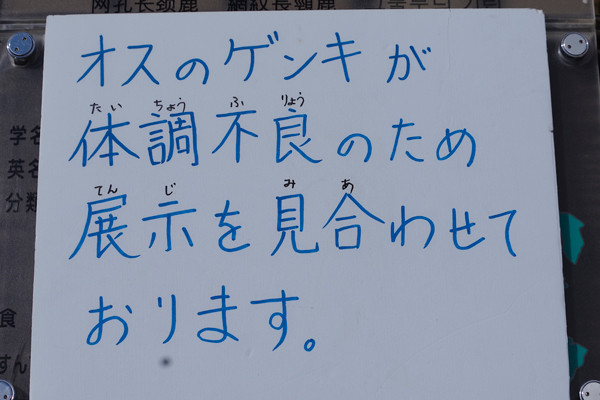 网纹长颈鹿 網紋長頸鹿
オスのゲンキが
たい ちょう ふ りょう
体調不良のため
てん じ み あ
展示を見合わせて
おります。
学名
英名
分類
食
すん